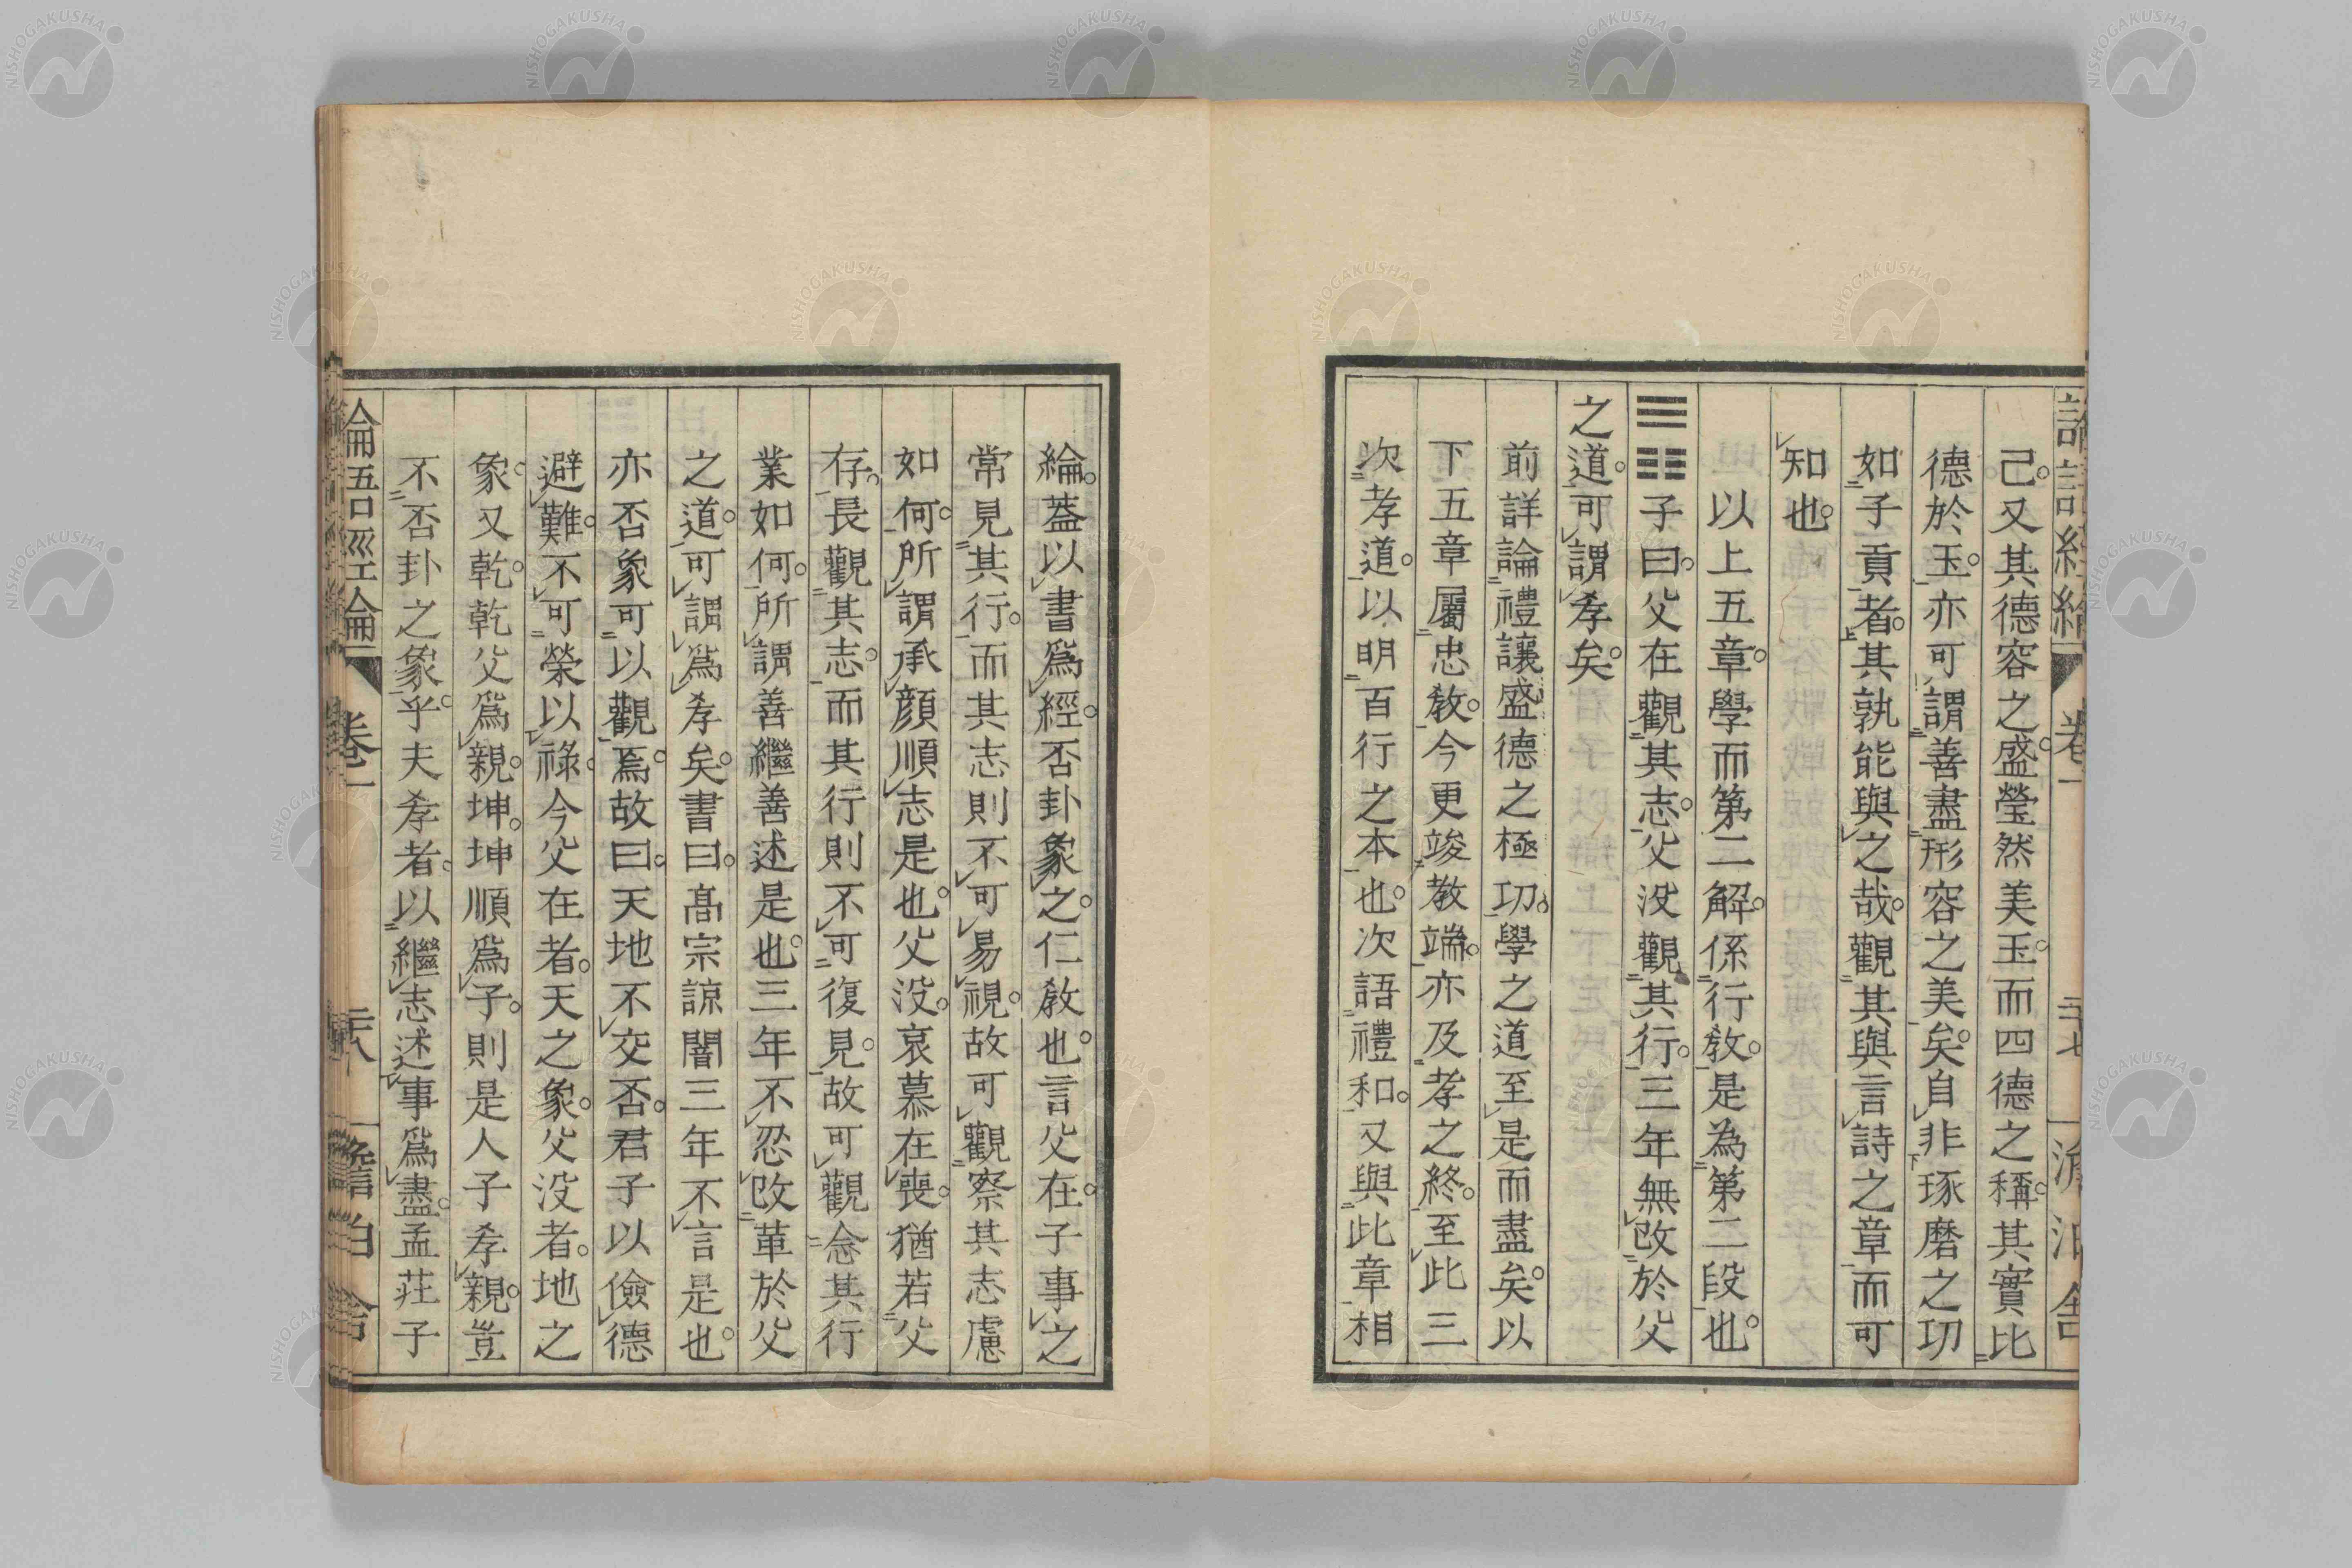 論語經綸 卷一 二十七 澹泊舍
己。又其德容之盛。瑩然美玉。而四德之稱。其實比
德於玉。亦可謂善盡形容之美矣。自非琢磨之功
如子貢者。其孰能與之哉。觀其與言詩之章而可
知也。
以上五章。學而第二解。係行敎。是為第二段也。
䷋子曰。父在觀其志。父沒觀其行。三年無改於父
之道。可謂孝矣。
前詳論禮讓盛德之極功。學之道至是而盡矣。以
下五章屬忠敎。今更竣教端。亦及孝之終。至此三
次孝道。以明百行之本也。次語禮和。又與此章相
綸。蓋以書爲經。否卦象之。仁敎也。言父在。子事之
常見其行。而其志則不可易視。故可觀察其志慮
如何。所謂承顔順志是也。父沒。哀慕在喪。猶若父
存。長觀其志。而其行則不可復見。故可觀念其行
業如何。所謂善繼善述是也。三年不忍改革於父
之道。可謂爲孝矣。書曰。高宗諒闇三年不言是也。
亦否象可以觀焉。故曰。天地不交否。君子以儉德
避難。不可榮以祿。今父在者。天之象。父沒者。地之
象。又乾。乾父爲親。坤。坤順爲子。則是人子孝親。豈
不否卦之象乎。夫孝者。以繼志述事爲盡。孟莊子
論語經綸 卷一 二十八 澹泊舍
NISHOGAKUSHA